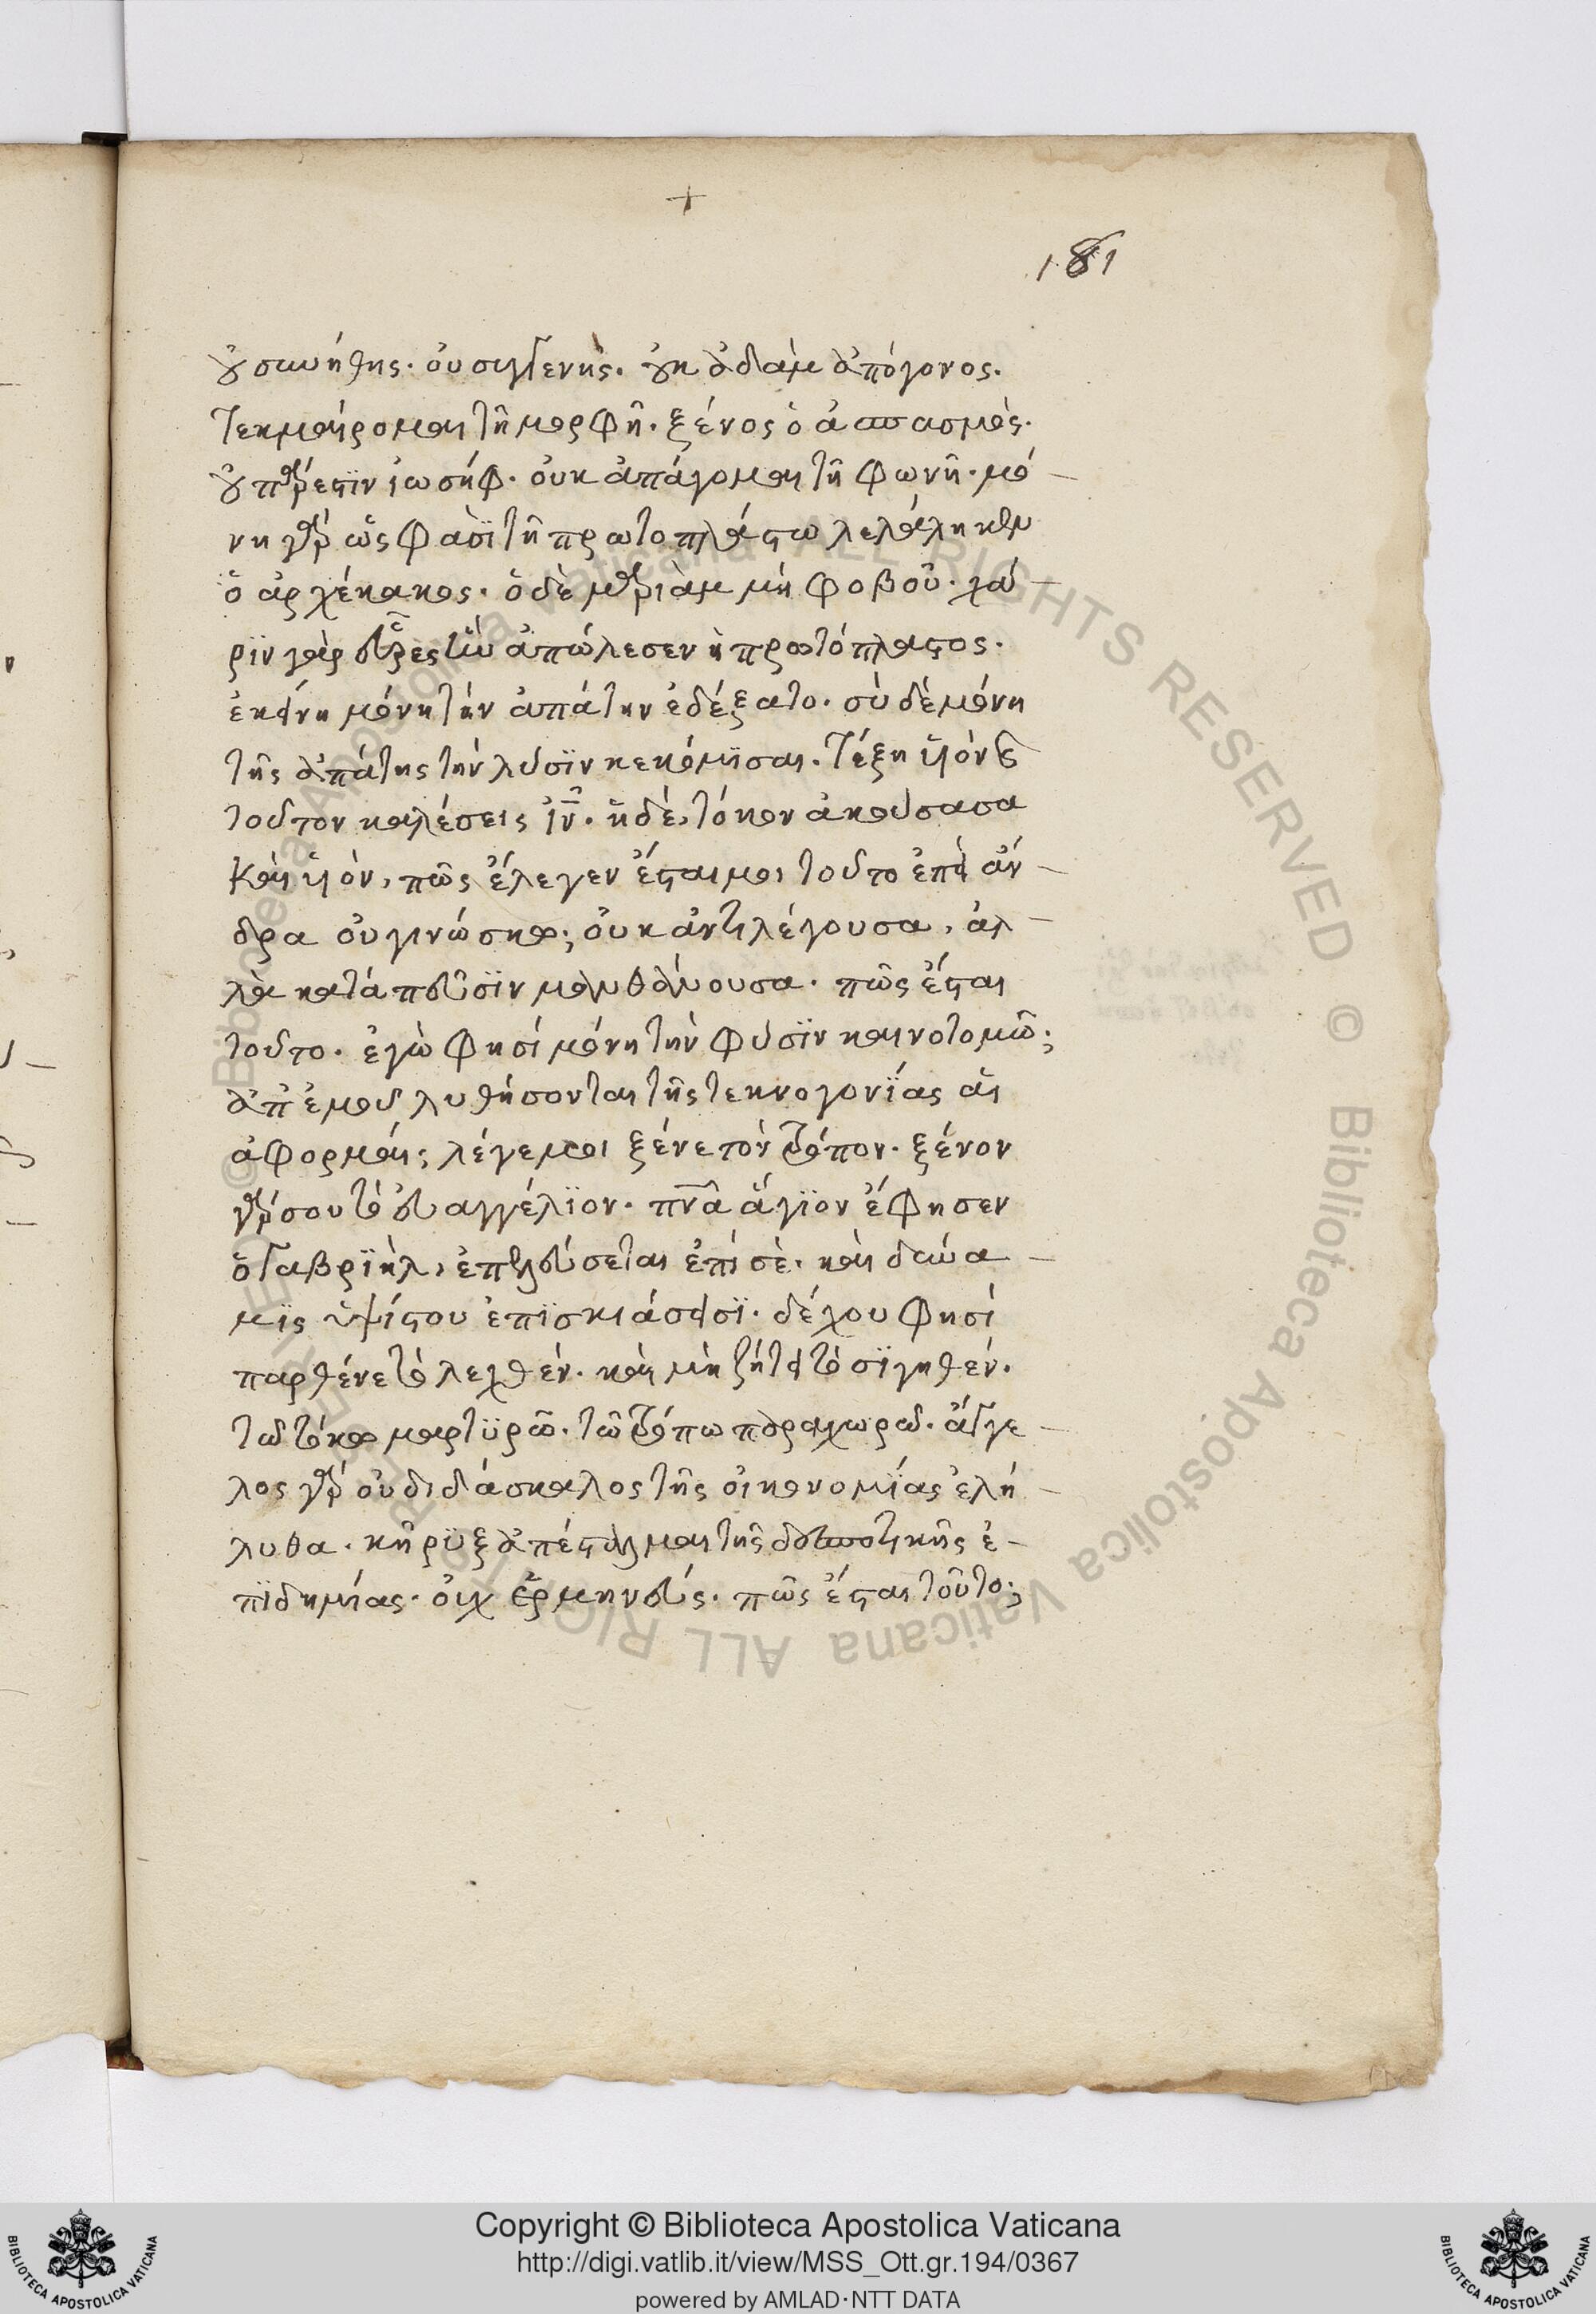 +
181
οὐ συνήθης. οὐ συγγενὴς. οὐκ ἀδὰμ ἀπόγονος.
τεκμαίρομαι τῆ μορφῆ. ξένος ὁ ἀσπασμὸς.
οὐ πάρεστϊν ἰωσήφ. οὐκ ἀπάγομαι τῆ φωνῆ. μό-
νη γάρ ὥς φασϊ τῆ πρωτοπλάστω λελάληκεν
ὁ ἀρχέκακος. ὁ δὲ μαριὰμ μὴ φοβοῦ. χά-
ρϊν γὰρ εὗρες ἣν ἀπώλεσεν ἡ πρωτόπλαστος.
ἐκείνη μόνη τὴν ἀπάτην ἐδέξατο. σὺ δὲ μόνη
τῆς ἀπάτης τὴν λύσϊν κεκόμϊσαι. τέξη υἱόν καὶ
τοῦτον καλέσεις ἰν̅. ἡ δὲ, τόκον ἀκούσασα
καὶ υἱὸν, πῶς ἔλεγεν ἔσται μοι τοῦτο ἐπεὶ ἄν-
δρα οὐ γινώσκω; οὐκ ἀντιλέγουσα, ἀλ-
λὰ κατὰ πεῦσϊν μανθάνουσα. πῶς ἔσται
τοῦτο. ἐγὼ φησί μόνη τὴν φύσϊν καινοτομῶ;
ἀπ' ἐμοῦ λυθήσονται τῆς τεκνογονΐας αἱ
ἀφορμαί; λέγε μοι ξένε τὸν τρόπον. ξένον
γάρ σου τὸ εὐαγγέλϊον. πν̅α ἅγϊον ἔφησεν
ὁ γαβρϊὴλ, ἐπελεύσεται ἐπὶ σὲ. καὶ δύνα-
μϊς ὑψίστου ἐπϊσκιάσει σϊ. δέχου φησί
παρθένε τὸ λεχθέν. καὶ μὴ ζήτει τὸ σϊγηθέν.
τῶ τόκω μαρτϋρῶ. τῶ τρόπω παραχωρῶ. ἄγγε-
λος γάρ οὐ διδάσκαλος τῆς οἰκονομΐας ἐλή-
λυθα. κῆρϋξ ἀπέσταλμαι τῆς δεσποτικῆς ἐ-
πϊδημίας. οὐχ ἑρμηνεύς. πῶς ἔσται τοῦτο;
Copyright © Biblioteca Apostolica Vaticana
http://digi.vatlib.it/view/MSS_Ott.gr.194/0367
powered by AMLAD·NTT DATA